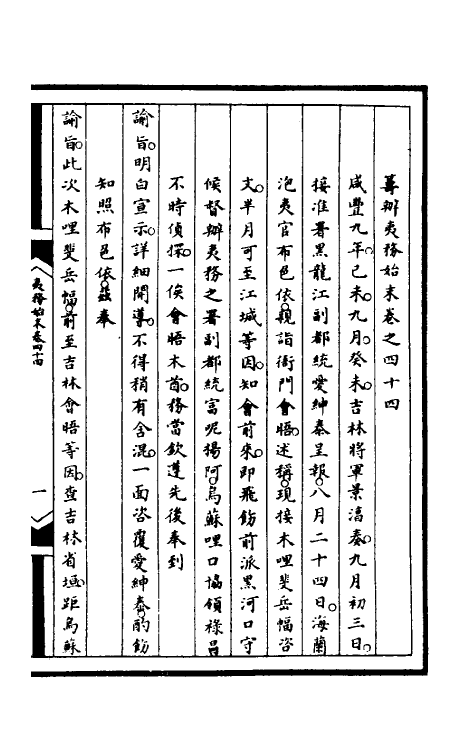 籌辦夷務始末卷之四十四
咸豐九年己未九月癸未吉林將軍景淳奏九月初三日
接准署黑龍江副都統愛紳泰呈報八月二十四日海蘭
泡夷官布色依親詣衙門會晤述稱現接木哩斐岳幅咨
文半月可至江城等因知會前來卽飛飭前派黑河口守
候督辦夷務之署副都統富呢揚阿烏蘇哩口協領祿昌
不時偵探一俟會晤木酋務當欽遵先後奉到
諭旨明白宣示詳細開導不得稍有含混一面咨覆愛紳泰酌飭
知照布色依茲奉
諭旨此次木哩斐岳幅前至吉林會晤等因查吉林省垣距烏蘇
夷務始末卷四十四
一